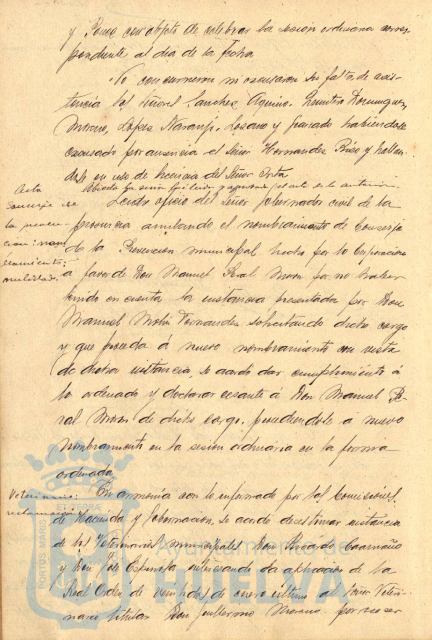 y Ponce con objeto de celebrar la sesión ordinaria corres-
pondiente al día de la fecha
No concurrieron ni excusaron su falta de asis-
tencia los señores Sanchez Aquino, Quintero Dominguez,
Moreno, Lopez Naranjo, Lozano y habiendose
excusado por ausencia el Señor Hernandez y hallan
dose en uso de licencia el Señor
Acta
Abierta la sesión fué leida y aprobada el acta de la anterior.
Conserje de
la preven-
ción: nom
bramiento;
nulidad.
Leido oficio del Señor Gobernador civil de la
provincia anulando el nombramiento de Conserje
de la Prevencion municipal hecho por la Corporacion
a favor de Don Manuel Peral Moron por no haber
tenido en cuenta la instancia presentada por Don
Manuel Mora Fernandez solicitando dicho cargo
y que proceda á nuevo nombramiento con vista
de dicha instancia, se acordó dar cumplimiento á
lo ordenado y declarar cesante á Don Manuel Pe-
ral Moron de dicho cargo, procediendose á nuevo
nombramiento en la sesion ordinaria en la forma
ordenada.
Veterinario:
reclamacion
En armonía con lo informado por las Comisiones
de Hacienda y Gobernacion, se acordó desestimar instancia
de los Veterinarios municipales Don Caamaño
y Don José Espinosa interesando la aplicacion de la
Real Orden de de enero último al Señor Veteri-
nario titular Don Guillermo Moreno por no ser
Ayuntamiento de
HUELVA
PORTUS MARIS